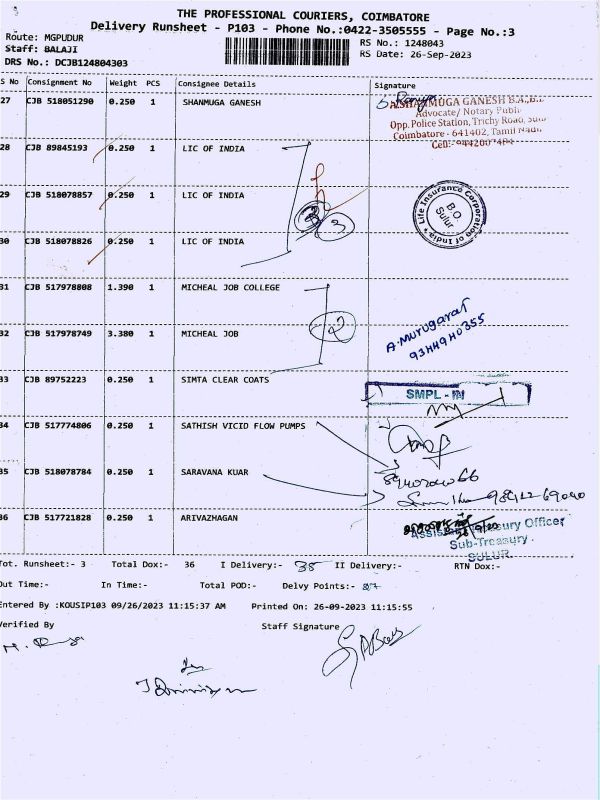 THE PROFESSIONAL COURIERS, COIMBATORE
Delivery Runsheet - P103 - Phone No.:0422-3505555 - Page No.:3
Route: MGPUDUR
Staff: BALAJI
DRS No.: DCJB124804303
RS No.: 1248043
RS Date: 26-Sep-2023
S No Consignment No Weight PCS Consignee Details Signature
27 CJB 518051290 0.250 1 SHANMUGA GANESH
A.SHANMUGA GANESH B.A., B.L
Advocate/ Notary Public
Opp. Police Station, Trichy Road, Sulur
Coimbatore - 641402, Tamil Nadu
Cell:
28 CJB 89845193 0.250 1 LIC OF INDIA
29 CJB 518078857 0.250 1 LIC OF INDIA
3 3
Life Insurance Corporation of India
B.O.
Sulur
30 CJB 518078826 0.250 1 LIC OF INDIA
31 CJB 517978808 1.390 1 MICHEAL JOB COLLEGE
2
A. Murugaraj
9344940355
32 CJB 517978749 3.380 1 MICHEAL JOB
33 CJB 89752223 0.250 1 SIMTA CLEAR COATS
SMPL - IN
34 CJB 517774806 0.250 1 SATHISH VICID FLOW PUMPS
35 CJB 518078784 0.250 1 SARAVANA KUAR
98422 69040
36 CJB 517721828 0.250 1 ARIVAZHAGAN
Assistant Treasury Officer
Sub-Treasury
SULUR
Tot. Runsheet:- 3 Total Dox:- 36 I Delivery:- 35 II Delivery:- RTN Dox:-
Out Time:- In Time:- Total POD:- Delvy Points:- 27
Entered By :KOUSIP103 09/26/2023 11:15:37 AM Printed On: 26-09-2023 11:15:55
Verified By Staff Signature